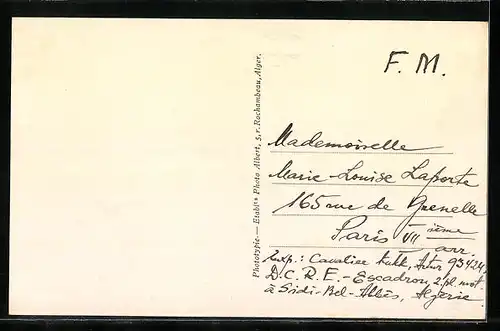 F. M.
Phototypie. — Etabl.ts Photo Albert, 5, r. Rochambeau, Alger.
Mademoiselle
Marie-Louise Laporte
165 rue de Grenelle
Paris VII ième
arr.
Exp.: Cavalier Artur 93424,
D.C.R.E. - Escadron, 2.pl. mot.
à Sidi-Bel-Abbès, Algérie.